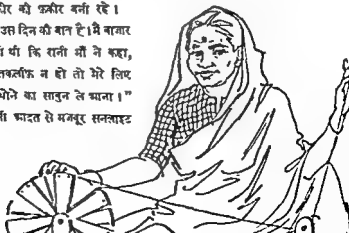 की फ़कीर बनी रहे ।
उस दिन की बात है। मैं बाजार
थी कि रानी माँ ने कहा,
तकलीफ़ न हो तो मेरे लिए
धोने का साबुन ले आना।”
आदत से मजबूर सनलाइट